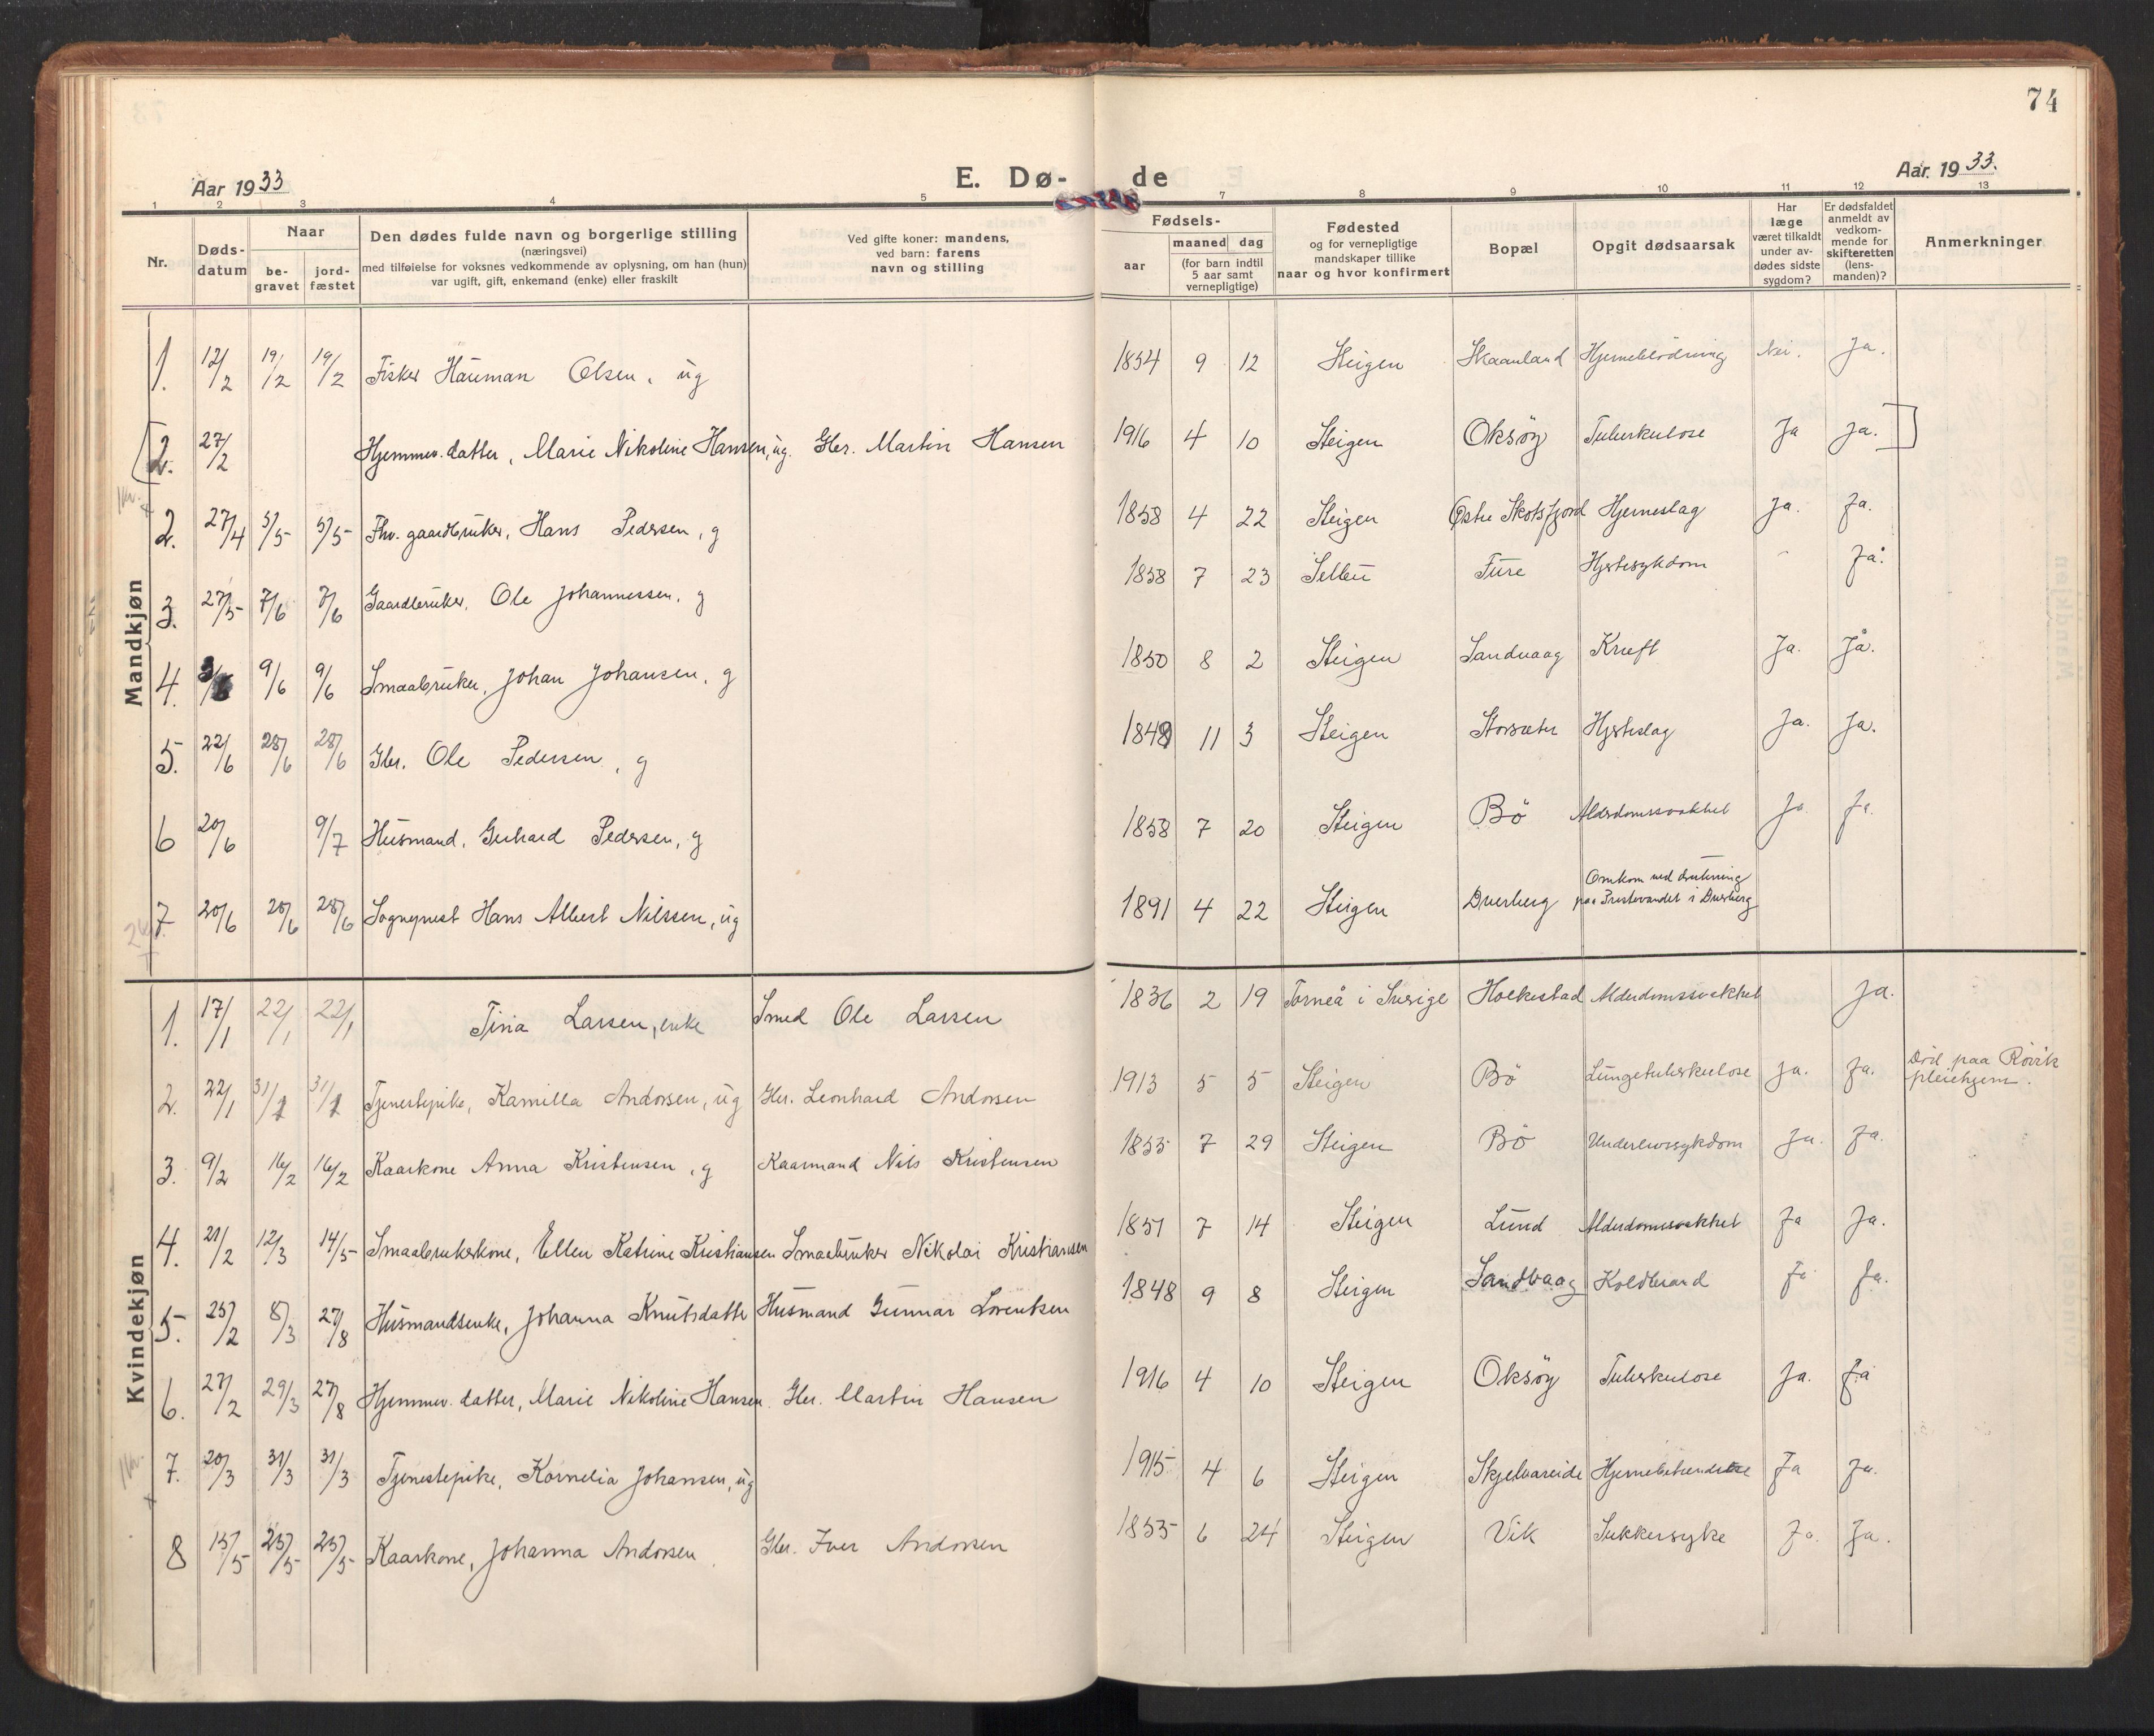 74
Aar 1933
E. Dø-
de
Aar. 1933.
1 2 3 4 5 7 8 9 10 11 12 13
Nr.
Døds-
datum
Naar
be-
gravet
jord-
fæstet
Den dødes fulde navn og borgerlige stilling
(næringsvei)
med tilføielse for voksnes vedkommende av oplysning, om han (hun)
var ugift, gift, enkemand (enke) eller fraskilt
Ved gifte koner: mandens,
ved barn: farens
navn og stilling
Fødsels-
aar
maaned dag
(for barn indtil
5 aar samt
vernepligtige)
Fødested
og for vernepligtige
mandskaper tillike
naar og hvor konfirmert
Bopæl
Opgit dødsaarsak
Har
læge
været tilkaldt
under av-
dødes sidste
sygdom?
Er dødsfaldet
anmeldt av
vedkom-
mende for
skifteretten
(lens-
manden)?
Anmerkninger
Mandkjøn
1. 12/2 19/2 19/2 Fisker Hauman Olsen, ug 1854 9 12 Steigen Skaanland Hjerneblødning Nei. Ja.
[2. 27/2 Hjemmev. datter, Marie Nikoline Hansen, ug. Gbr. Martin Hansen 1916 4 10 Steigen Oksöy Tuberkulose Ja Ja.]
2. 27/4 5/5 5/5 Fhv. gaardbruker, Hans Pedersen, g 1858 4 22 Steigen Østre Skotsfjord Hjerneslag Ja. Ja.
3. 27/5 7/6 7/6 Gaardbruker, Ole Johannessen, g 1858 7 23 Fure Hjertesykdom Ja.
4. 9/6 9/6 Smaabruker, Johan Johansen, g 1850 8 2 Steigen Sandvaag Kræft Ja. Ja.
5. 22/6 28/6 28/6 Gbr. Ole Pedersen, g 11 3 Steigen Storsæter Hjerteslag Ja. Ja.
6 20/6 9/7 Husmand, Gerhard Pedersen, g 1858 7 20 Steigen Bö Alderdomssvakhet Ja Ja.
7 20/6 28/6 28/6 Sogneprest Hans Albert Nilssen, ug 1891 4 22 Steigen Dverberg Omkom ved drukning
paa Prestevandet i Dverberg
Kvindekjøn
1. 17/1 22/1 22/1 Tina Larsen, enke Smed Ole Larsen 1836 2 19 Torneå i Sverige Holkestad Alderdomssvakhet Ja.
2. 22/1 31/1 31/1 Tjenestepike, Kamilla Andorsen, ug Gbr. Leonhard Andorsen 1913 5 5 Steigen Bö Lungetuberkulose Ja. Ja. Död paa Rövik
pleiehjem.
3. 9/2 16/2 16/2 Kaarkone Anna Kristensen, g Kaarmand Nils Kristensen 1855 7 29 Steigen Bö Underlivssykdom Ja. Ja.
4. 21/2 12/3 14/5 Smaabrukerkone, Ellen Katrine Kristiansen Smaabruker Nikolai Kristiansen 1851 7 14 Steigen Lund Alderdomssvakhet Ja Ja.
5. 25/2 8/3 27/8 Husmandsenke, Johanna Knutsdatter Husmand Gunnar Lorentsen 1848 9 8 Steigen Sandvaag Koldbrand Ja Ja.
6. 27/2 29/3 27/8 Hjemmev. datter, Marie Nikoline Hansen. Gbr. Martin Hansen 1916 4 10 Steigen Oksöy Tuberkulose Ja. Ja
7. 20/3 31/3 31/3 Tjenestepike, Kornelia Johansen, ug 1915 4 6 Steigen Skjelvareide Hjernebetændelse Ja Ja.
8 15/5 25/5 25/5 Kaarkone, Johanna Andorsen. Gbr. Iver Andorsen 1855 6 24 Steigen Vik Sukkersyke Ja. Ja.